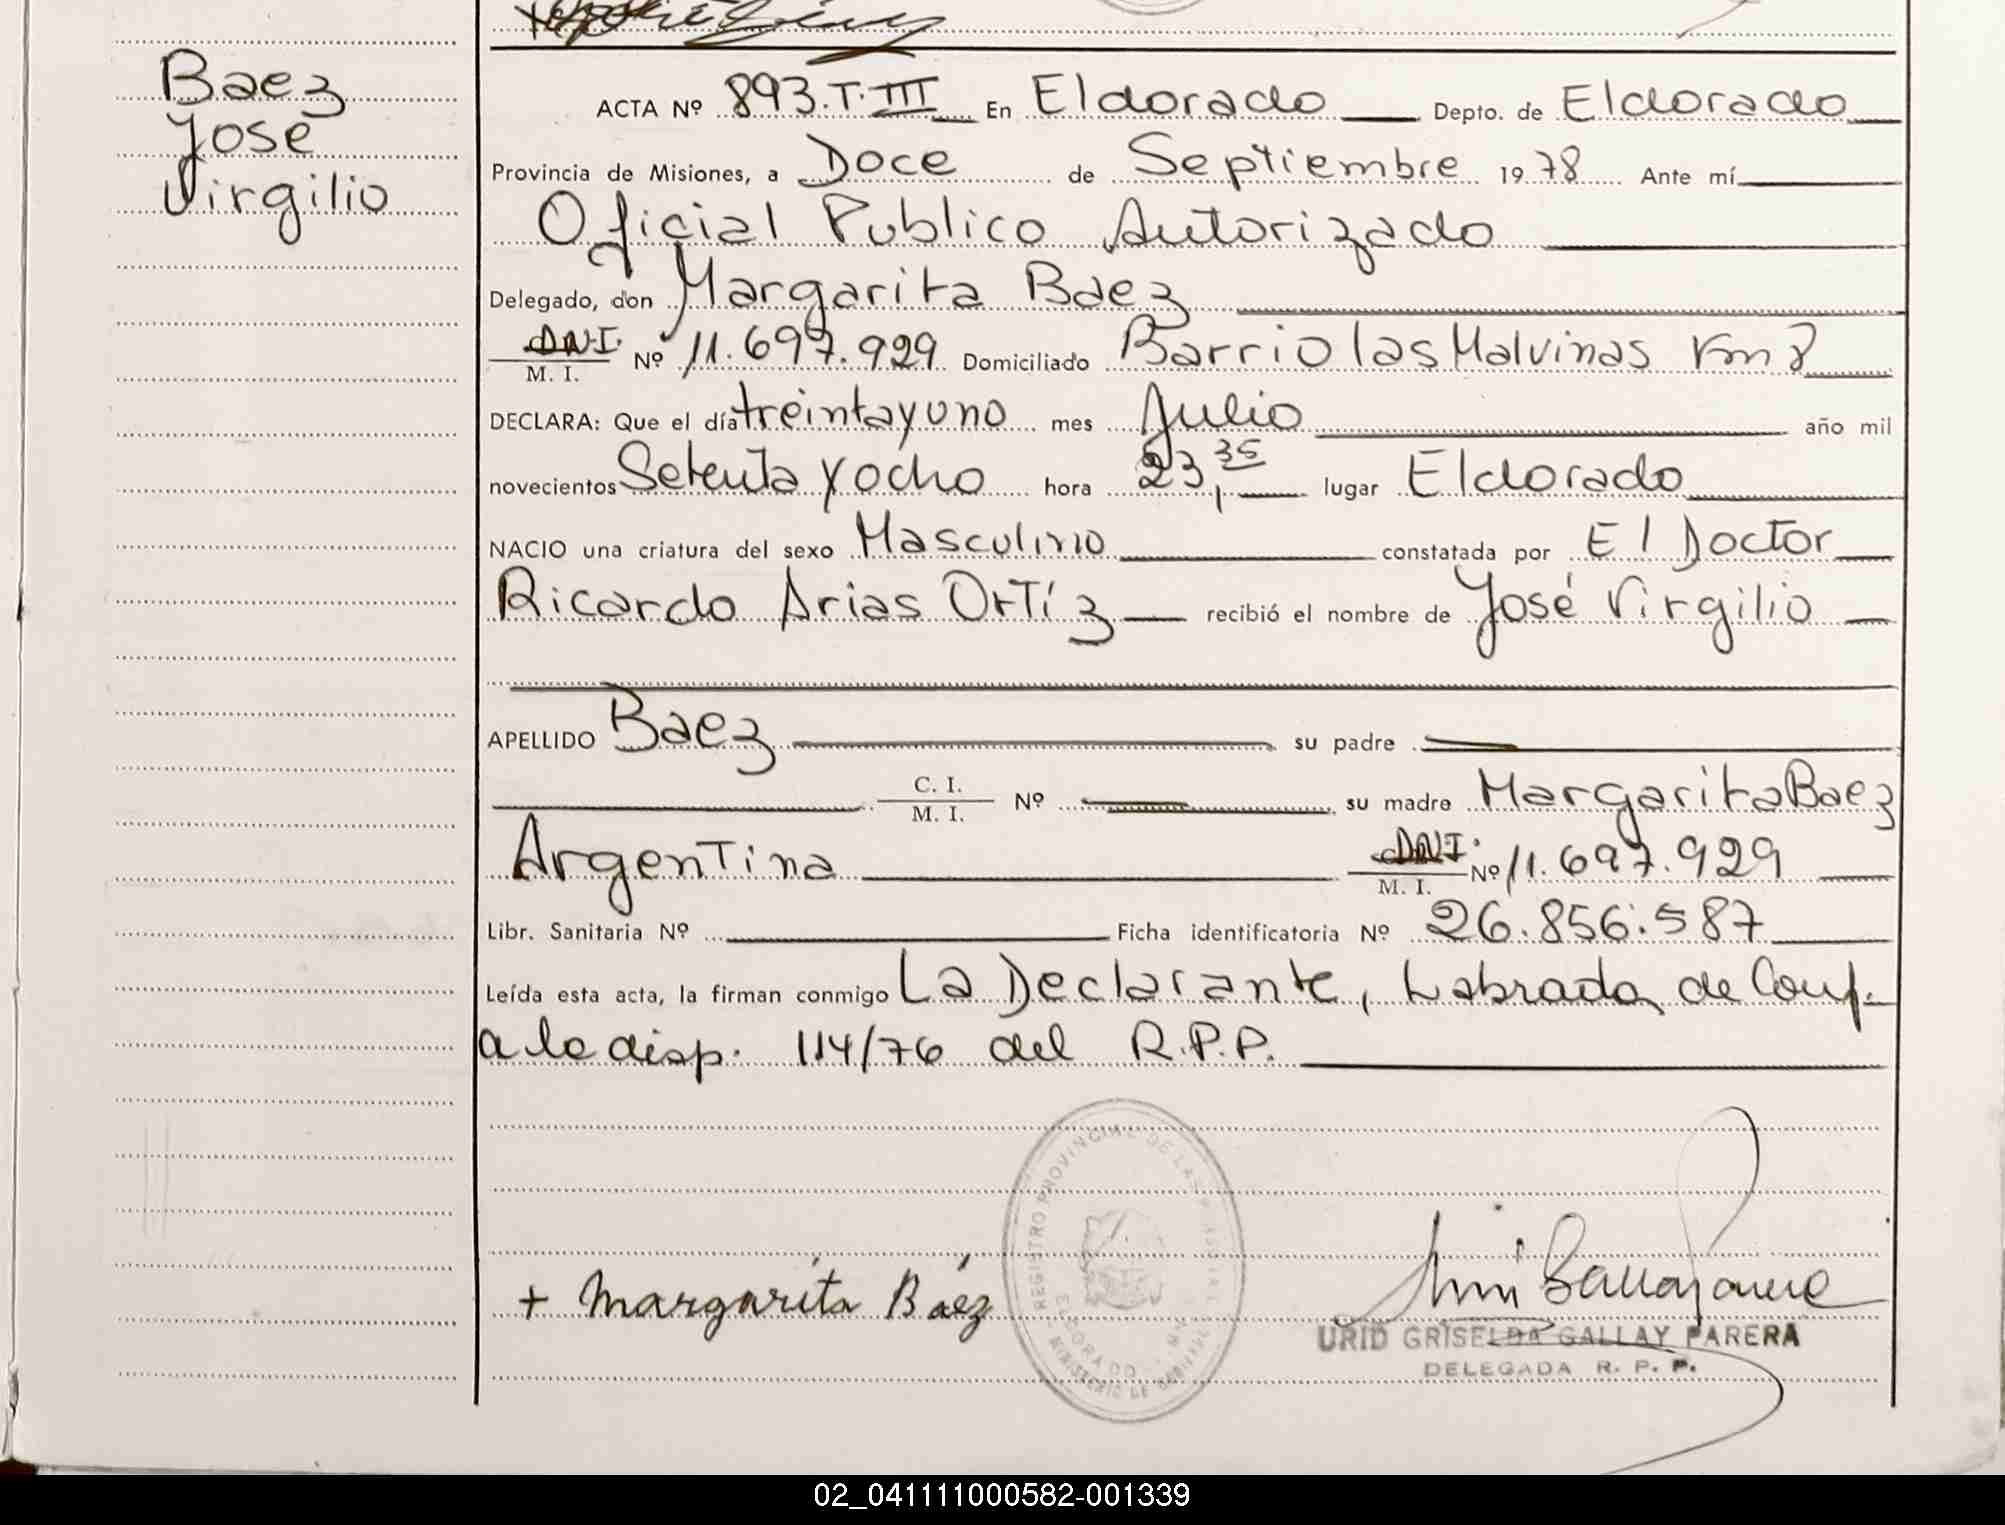 Baez
José
Virgilio
ACTA Nº 893.T.III En Eldorado Depto. de Eldorado
Provincia de Misiones, a Doce de Septiembre 1978 Ante mí
Oficial Publico Autorizado
Delegado, don Margarita Baez
DNI. M. I. Nº 11.697.929 Domiciliado Barrio las Malvinas Km 8
DECLARA: Que el día treintayuno mes Julio año mil
novecientos Setenta y ocho hora 23,35 lugar Eldorado
NACIO una criatura del sexo Masculino constatada por El Doctor
Ricardo Arias Ortíz recibió el nombre de José Virgilio
APELLIDO Baez su padre
C. I. M. I. Nº su madre Margarita Baez
Argentina DNI. M. I. Nº 11.697.929
Libr. Sanitaria Nº Ficha identificatoria Nº 26.856.587
Leída esta acta, la firman conmigo La Declarante, Labrada de Conf.
a la disp. 114/76 del R.P.P.
REGISTRO PROVINCIAL DE LAS PERSONAS
ELDORADO
MINISTERIO DE
+ Margarita Báez
URID GRISELDA GALLAY PARERA
DELEGADA R. P. P.
02_041111000582-001339